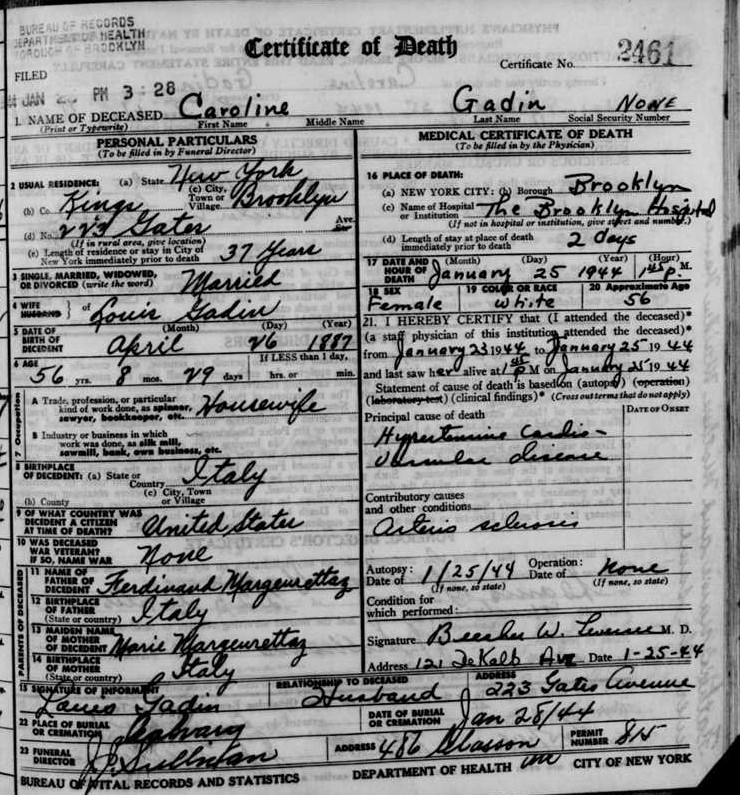 BUREAU OF RECORDS
DEPARTMENT OF HEALTH
BOROUGH OF BROOKLYN
Certificate of Death
Certificate No. 2461
FILED
JAN PM 3:28
1. NAME OF DECEASED Caroline Gadin NONE
(Print or Typewrite) First Name Middle Name Last Name Social Security Number
PERSONAL PARTICULARS
(To be filled in by Funeral Director)
2 USUAL RESIDENCE: (a) State New York
(b) Co. Kings (c) City, Town or Village Brooklyn
(d) No. 223 Gates Ave. St.
(If in rural area, give location)
(e) Length of residence or stay in City of New York immediately prior to death 37 Years
3 SINGLE, MARRIED, WIDOWED, OR DIVORCED (write the word) Married
4 WIFE HUSBAND } of Louis Gadin
5 DATE OF BIRTH OF DECEDENT (Month) (Day) (Year)
April 26 1887
6 AGE If LESS than 1 day,
56 yrs. 8 mos. 29 days hrs. or min.
7 Occupation
A Trade, profession, or particular kind of work done, as spinner, sawyer, bookkeeper, etc. Housewife
B Industry or business in which work was done, as silk mill, sawmill, bank, own business, etc.
8 BIRTHPLACE OF DECEDENT: (a) State or Country Italy
(b) County (c) City, Town or Village
9 OF WHAT COUNTRY WAS DECEDENT A CITIZEN AT TIME OF DEATH? United States
10 WAS DECEASED WAR VETERAN? IF SO, NAME WAR None
PARENTS OF DECEDENT
11 NAME OF FATHER OF DECEDENT Ferdinand Margeurettaz
12 BIRTHPLACE OF FATHER (State or country) Italy
13 MAIDEN NAME OF MOTHER OF DECEDENT Marie Margeurettaz
14 BIRTHPLACE OF MOTHER (State or country) Italy
MEDICAL CERTIFICATE OF DEATH
(To be filled in by the Physician)
16 PLACE OF DEATH:
(a) NEW YORK CITY: (b) Borough Brooklyn
(c) Name of Hospital or Institution The Brooklyn Hospital
(If not in hospital or institution, give street and number.)
(d) Length of stay at place of death immediately prior to death 2 days
17 DATE AND HOUR OF DEATH (Month) (Day) (Year) (Hour)
January 25 1944 P. M.
18 SEX 19 COLOR OR RACE 20 Approximate Age
Female White 56
21. I HEREBY CERTIFY that (I attended the deceased)*
(a staff physician of this institution attended the deceased)*
from January 23 1944 to January 25 1944
and last saw her alive at P M on January 25 1944
Statement of cause of death is based on (autopsy) (operation)
(laboratory test) (clinical findings)* (Cross out terms that do not apply)
Principal cause of death DATE OF ONSET
Hypertensive Cardio-
vascular disease
Contributory causes
and other conditions
Arterio sclerosis
Autopsy: Date of 1/25/44 Operation: Date of None
(If none, so state) (If none, so state)
Condition for
which performed:
Signature Beecher W. M. D.
Address 121 DeKalb Ave Date 1-25-44
15 SIGNATURE OF INFORMANT RELATIONSHIP TO DECEASED ADDRESS
Louis Gadin Husband 223 Gates Avenue
22 PLACE OF BURIAL OR CREMATION Calvary DATE OF BURIAL OR CREMATION Jan 28/44
23 FUNERAL DIRECTOR J.J. Sullivan ADDRESS 486 Classon PERMIT NUMBER
BUREAU OF VITAL RECORDS AND STATISTICS DEPARTMENT OF HEALTH CITY OF NEW YORK